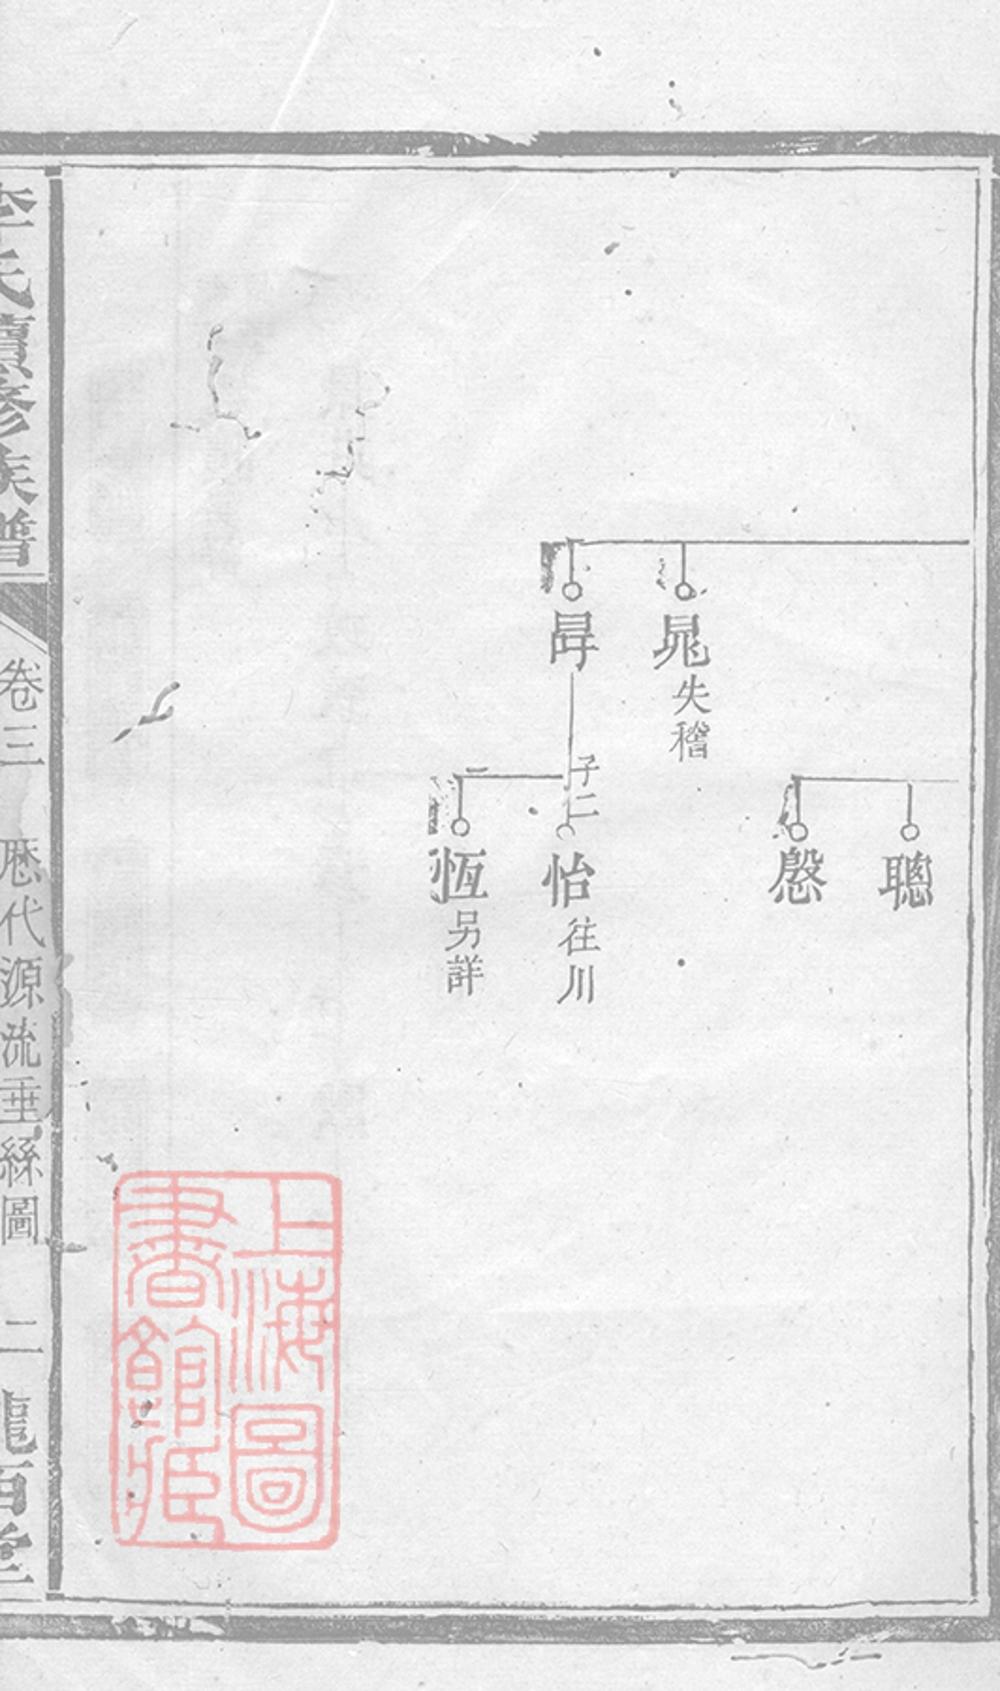 晁失稽
聰
慇
子二
怡往川
恆另詳
李氏續修族譜
卷三
歷代源流垂絲圖
二
龍百堂
上海圖書館藏